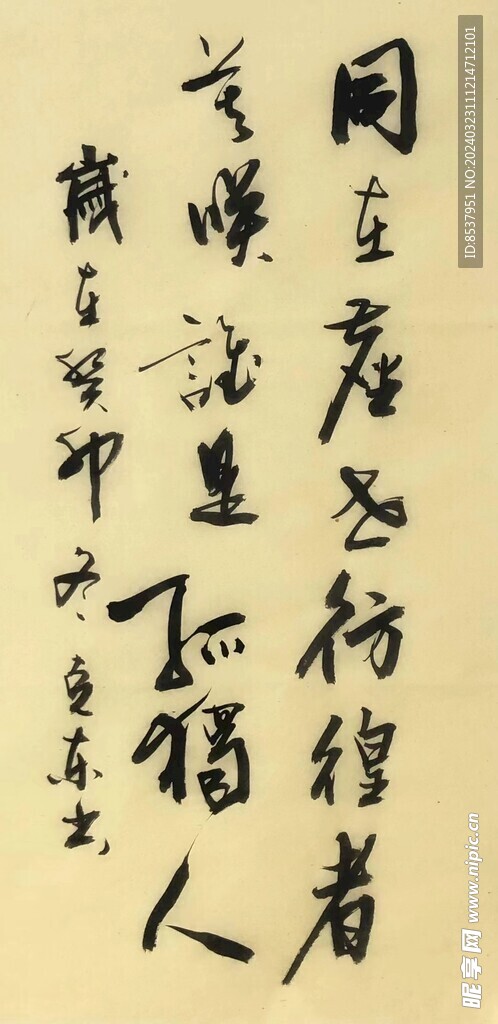 同在塵世彷徨者
莫嘆誰是孤獨人
歲在癸卯冬克東书
ID:8537951 NO:20240323111214712101
昵享网 www.nipic.cn